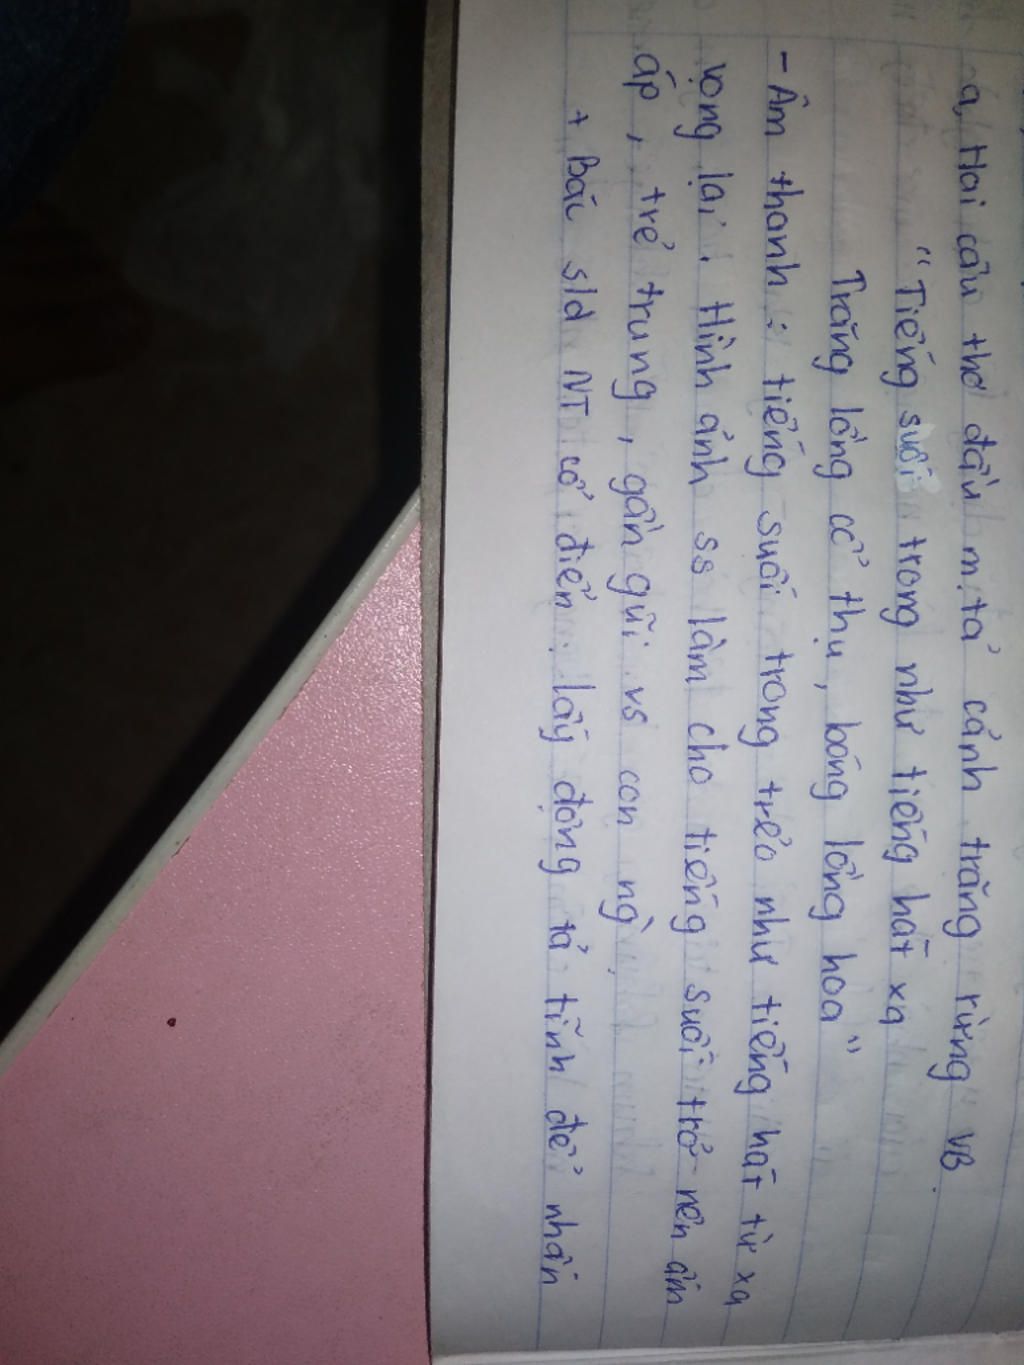 a, Hai câu thơ đầu m.tả cảnh trăng rừng VB.
"Tiếng suối trong như tiếng hát xa
Trăng lồng cổ thụ, bóng lồng hoa"
- Âm thanh : tiếng suối trong trẻo như tiếng hát từ xa
vọng lại. Hình ảnh ss làm cho tiếng suối trở nên ấm
áp, trẻ trung, gần gũi vs con ng`.
+ Bác sld NT cổ điển: lấy động tả tĩnh để nhấn